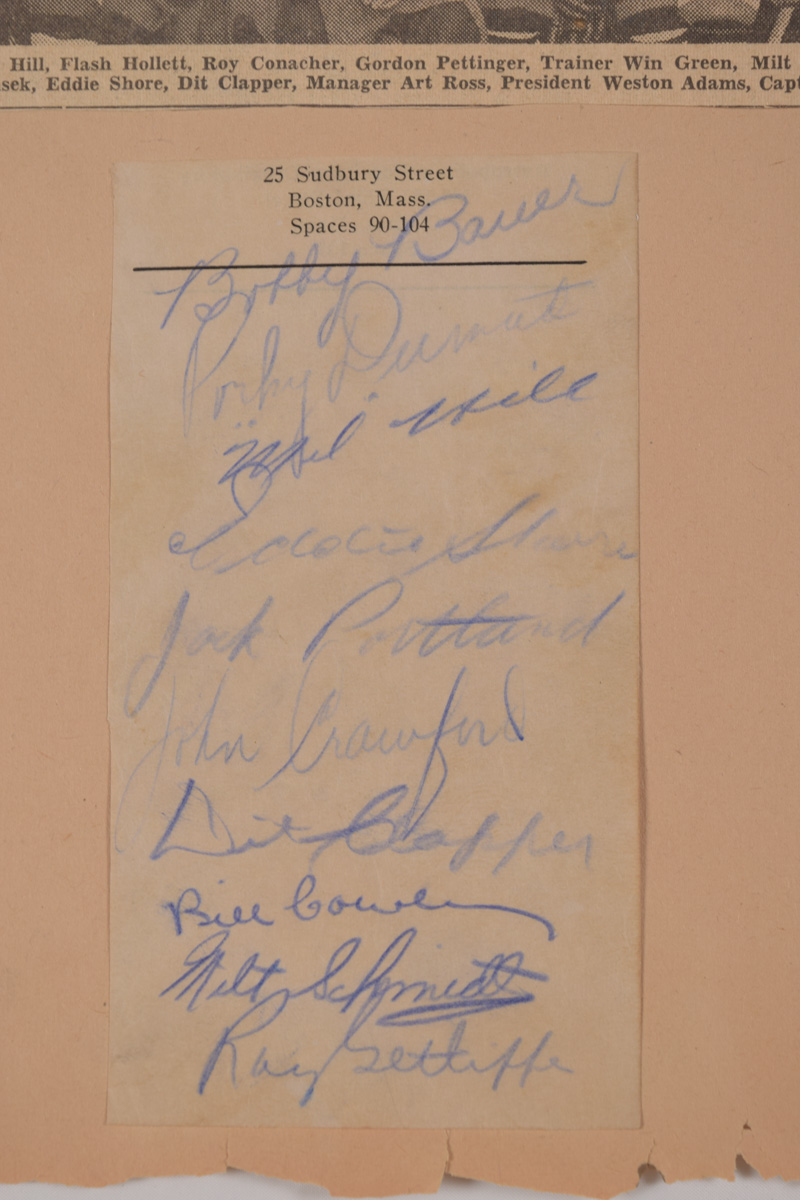 Hill, Flash Hollett, Roy Conacher, Gordon Pettinger, Trainer Win Green, Milt
sek, Eddie Shore, Dit Clapper, Manager Art Ross, President Weston Adams, Capt
25 Sudbury Street
Boston, Mass.
Spaces 90-104
Bobby Bauer
Porky Dumart
Mel Hill
Eddie Shore
Jack Portland
John Crawford
Dit Clapper
Bill Cowley
Milt Schmidt
Ray Getliffe